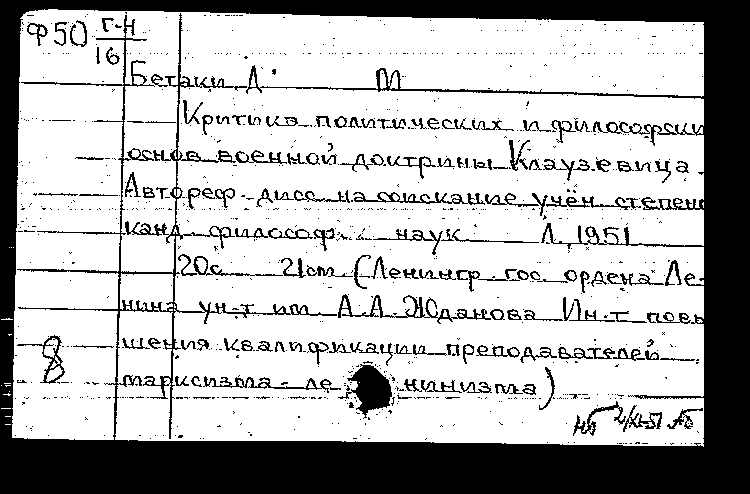 Ф50 Г-Н
16
Бетаки Д. М
Критика политических и философски
основ военной доктрины Клаузевица.
Автореф. дисс. на соискание учён. степени
канд. философ. наук Л., 1951
20с. 21см. (Ленингр. гос. ордена Ле-
нина ун-т им. А.А. Жданова Ин-т повы
шения квалификации преподавателей
марксизма-ленинизма)
8